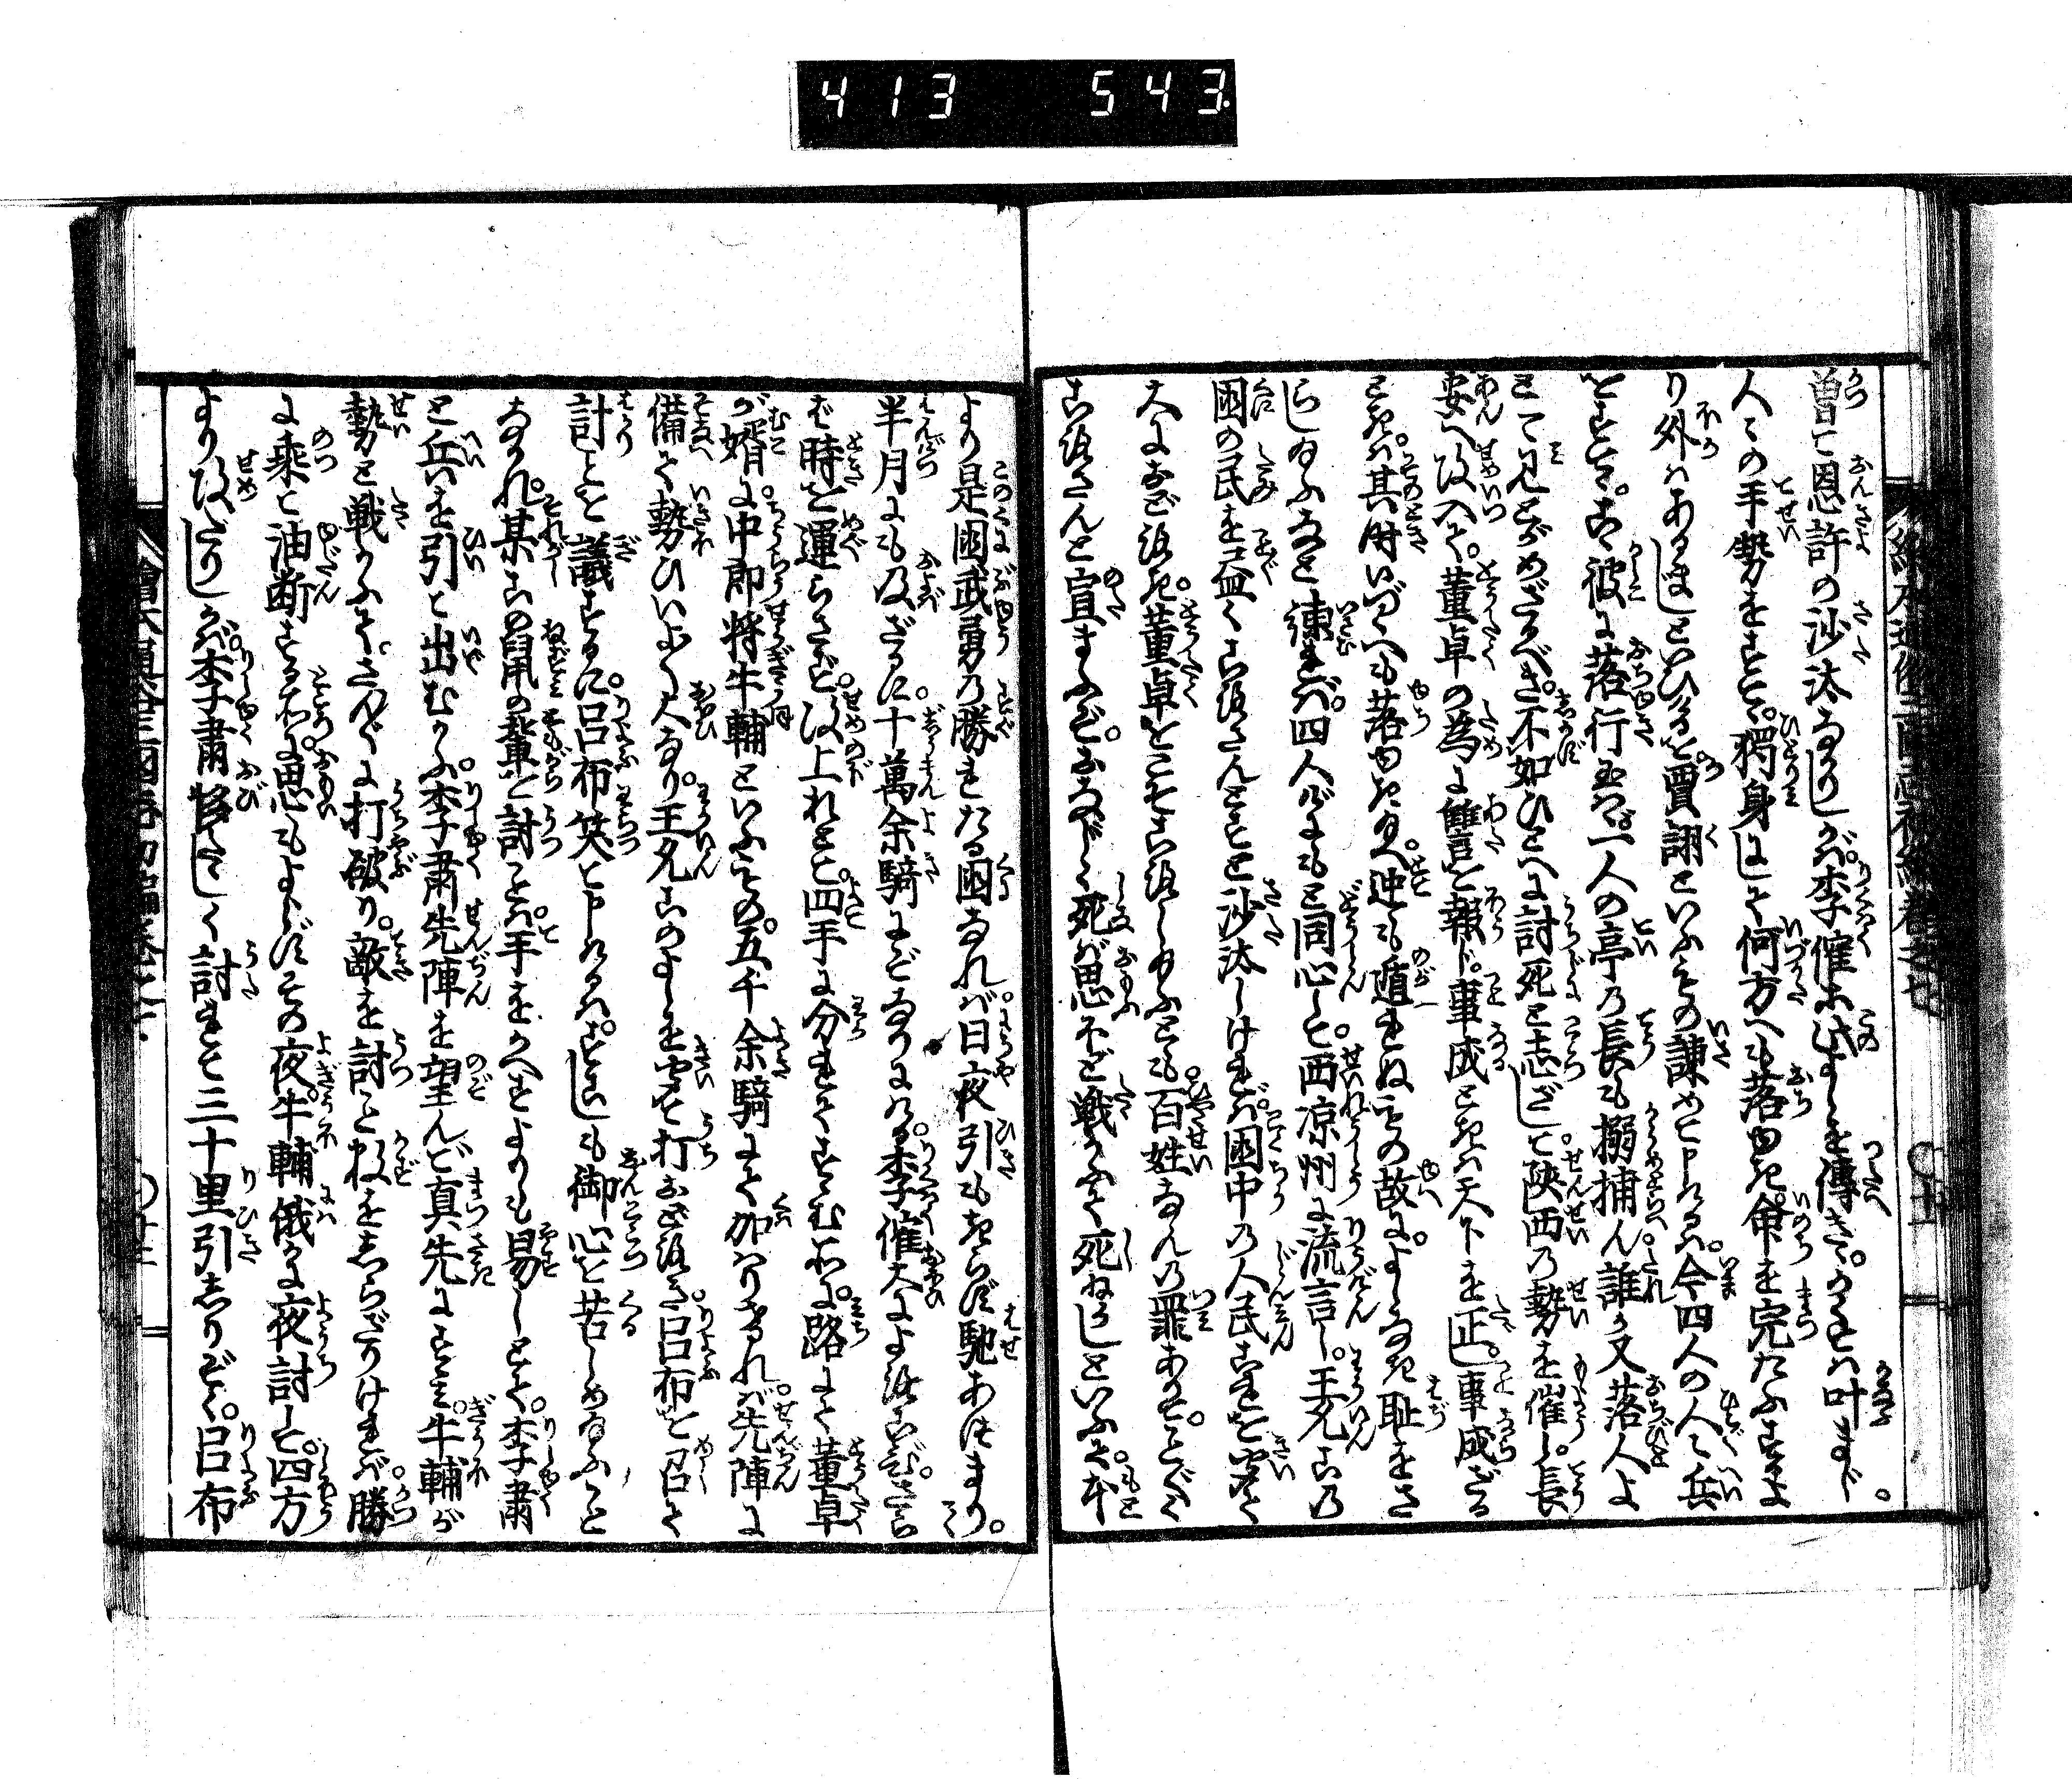 413 543
曽て恩許の沙汰なかりしが。李傕此よしを傳きゝ。かくては叶まじ。
人々の手勢をすてゝ。獨身にして何方へも落ゆき。命を完たふするよ
り外はあるまじといひけるを賈詡といふもの諫めて申けるは。今四人の人々兵
をすてゝ。彼に落行玉はゞ。一人の亭の長も搦捕ん誰か又落人よ
とて見とがめざるべき。不如ひとへに討死と志ざして。陝西の勢を催し。長
安へ攻入て。董卓の為に讐を報じ。事成ときは天下を正し。事成ざる
ときは。其時いづくへも落ゆき玉へ。迚も遁れぬもの故に。よしなき耻をさ
らし玉ふなと諫ければ。四人げにもと同心して。西凉州に流言し。王允この
國の民を盡く殺さんとすと沙汰しければ。國中の人民これを聞て
大におどろき。董卓をこそ殺し玉ふとも。百姓なんの罪あれば。ことごとく
殺さんと宣まふぞ。おなじく死ば思ふほど戦かふて死ねかしといふ。本
より是國武勇の勝れたる國なれば。日夜引もきらず馳あつまり。
半月にも及ばざるに。十萬余騎にぞなりにける。李傕大によろこび。さら
ば時を運らさず。攻上れとて。四手に分れてすゝむ所に。路にて董卓
が婿に。中郎将牛輔といふもの。五千余騎にて加はりければ。先陣に
備て勢ひいよ〱大なり。王允このよしを聞て打おどろき。呂布を召て
計ことを議するに。呂布笑て申けるは。すこしも御心を苦しめ玉ふこと
なかれ。某この鼠の輩を討ことは。手をかへすよりも易しとて。李肅
と兵を引て出むかふ。李肅先陣を望んで真先にすゝみ。牛輔が
勢と戦かふて。さんざんに打破り。敵を討こと数をしらざりければ。勝
に乗て油断する所に。思もよらずその夜。牛輔俄に夜討して。四方
より攻たりしかば。李肅驚しく討れて三十里引しりぞく。呂布